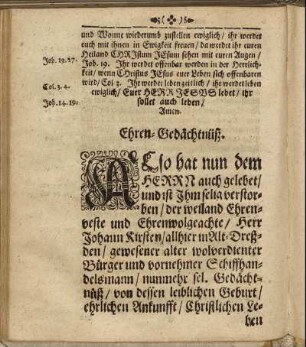 und Wonne wiederumb zustellen ewiglich/ ihr werdet
euch mit ihnen in Ewigkeit freuen/ da werdet ihr euren
Heiland CHRIstum JESum sehen mit euren Augen/
Job. 19. 27.
Job. 19. Ihr werdet offenbar werden in der Herrlich-
keit/ wenn CHristus JEsus euer Leben sich offenbaren
Col. 3. 4.
wird/ Col 3. Ihr werdet leben zeitlich/ ihr werdet leben
ewiglich/ Euer HERR JESUS lebet/ ihr
Joh. 14. 19.
sollet auch leben/
Amen.
Ehren-Gedächtnüß.
Also hat nun dem
HERRN auch gelebet/
und ist Ihm selig verstor-
ben/ der weiland Ehren-
veste und Ehrenwolgeachte/ Herr
Johann Kirsten/ allhier in Alt-Dreß-
den/ gewesener alter wolverdienter
Bürger und vornehmer Schiffhan-
delsmann/ nunmehr sel. Gedächt-
nüß/ von dessen leiblichen Geburt/
ehrlichen Ankunfft/ Christlichen Le-
ben